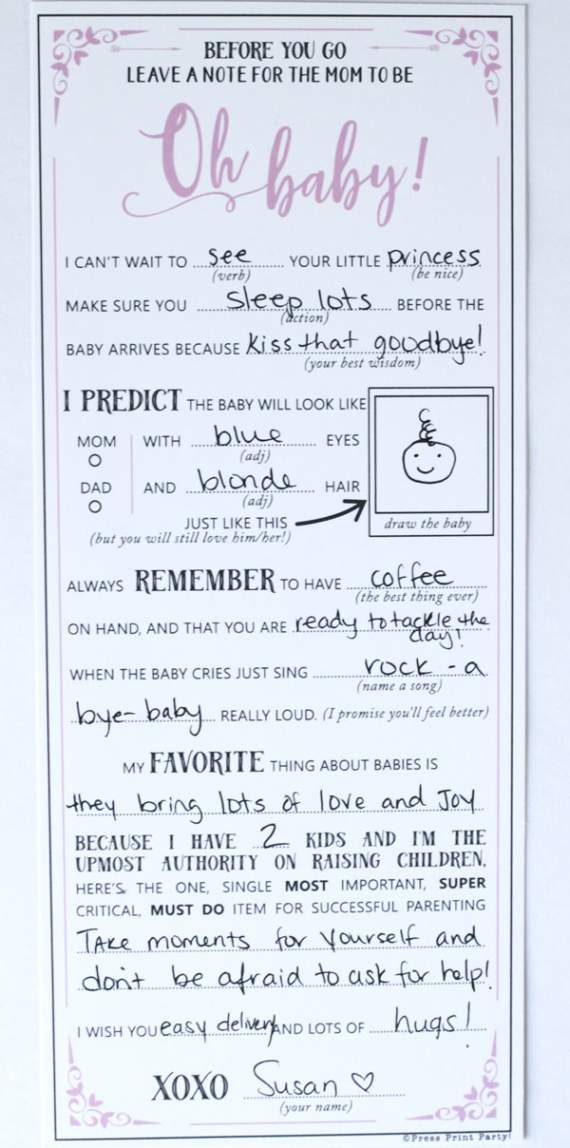 BEFORE YOU GO
LEAVE A NOTE FOR THE MOM TO BE
Oh baby!
I CAN'T WAIT TO see YOUR LITTLE princess
(verb) (be nice)
MAKE SURE YOU sleep lots BEFORE THE
(action)
BABY ARRIVES BECAUSE kiss that goodbye!
(your best wisdom)
I PREDICT THE BABY WILL LOOK LIKE
MOM WITH blue EYES
(adj)
DAD AND blonde HAIR
(adj)
JUST LIKE THIS
(but you will still love him/her!)
draw the baby
ALWAYS REMEMBER TO HAVE coffee
(the best thing ever)
ON HAND, AND THAT YOU ARE ready to tackle the
day!
WHEN THE BABY CRIES JUST SING rock - a
(name a song)
bye- baby REALLY LOUD. (I promise you'll feel better)
MY FAVORITE THING ABOUT BABIES IS
they bring lots of love and Joy
BECAUSE I HAVE 2 KIDS AND I'M THE
UPMOST AUTHORITY ON RAISING CHILDREN,
HERE'S THE ONE, SINGLE MOST IMPORTANT, SUPER
CRITICAL, MUST DO ITEM FOR SUCCESSFUL PARENTING
TAke moments for yourself and
don't be afraid to ask for help!
I WISH YOU easy delivery AND LOTS OF hugs!
XOXO Susan ♡
(your name)
©Press Print Party!